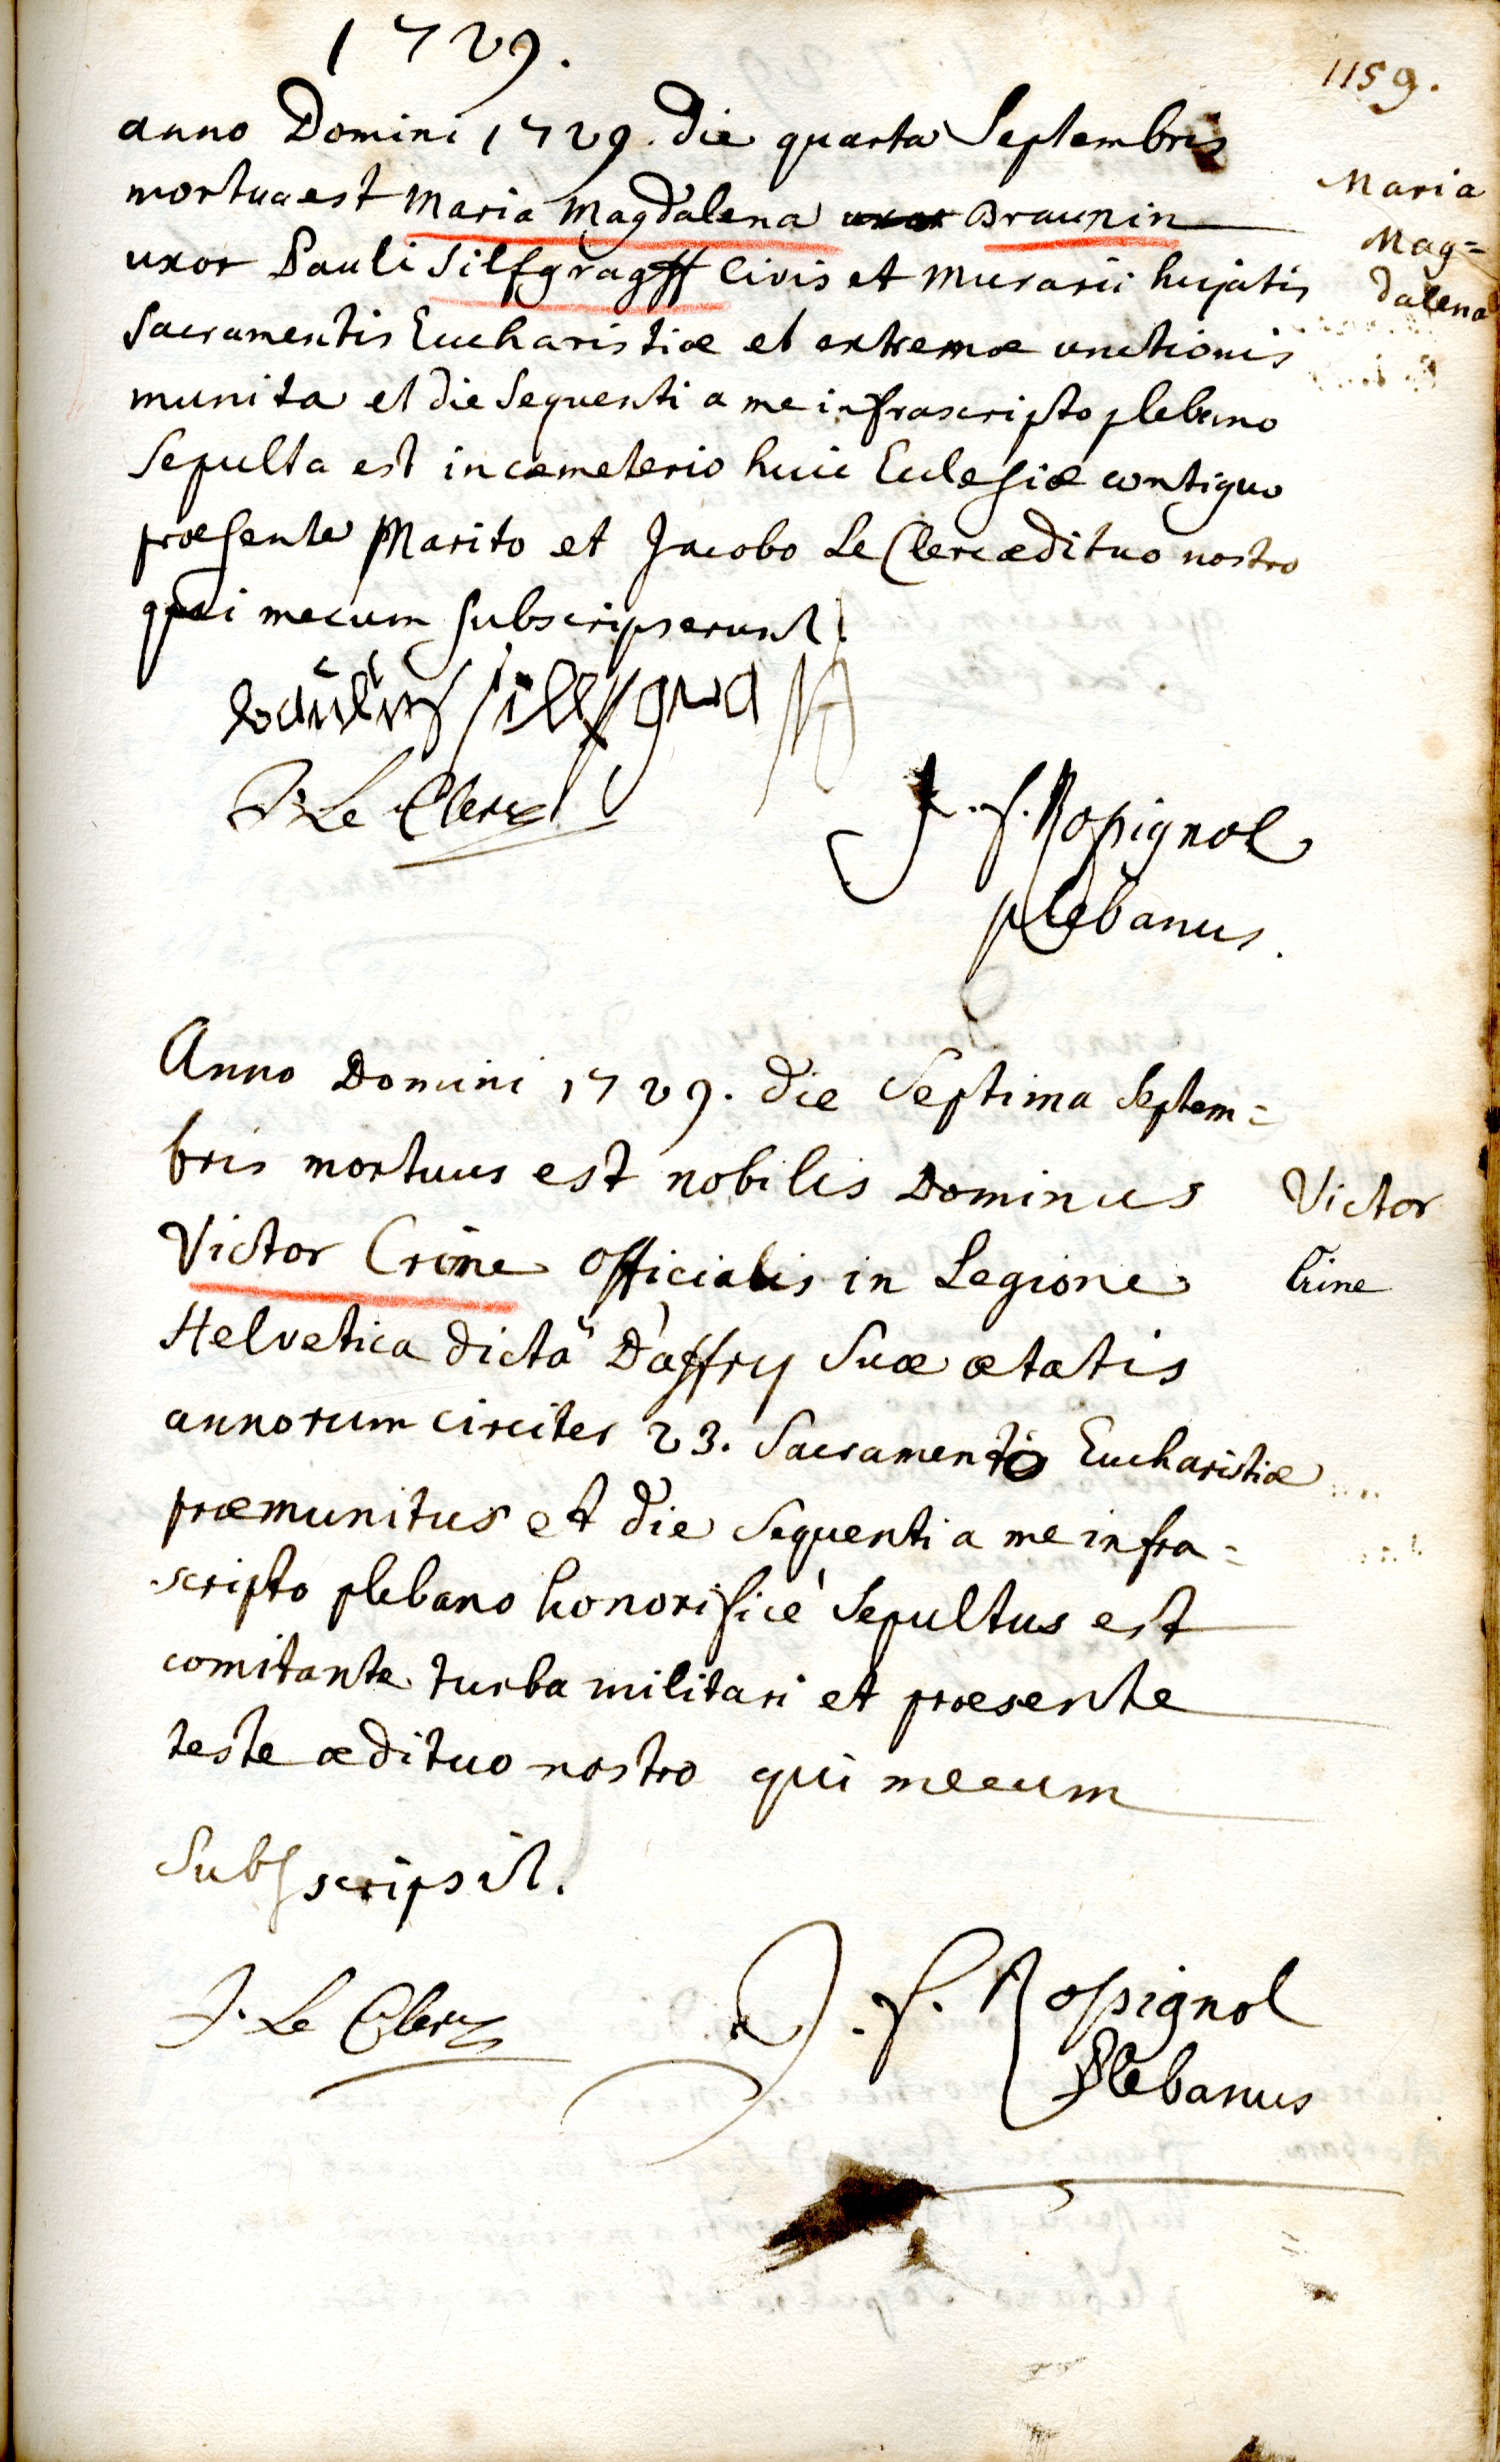 1729.
1159.
anno Domini 1729. die quarta Septembris
mortua est Maria Magdalena uxor Braunin
Maria
Mag=
dalena
uxor Pauli Silfgragff Civis et Murarii hujatis
Sacramentis Eucharistiæ et extremæ unctionis
munita et die Sequenti a me infrascripto plebano
Sepulta est in cæmeterio huic Eclesiæ contiguo
præsente Marito et Jacobo Le Clerc ædituo nostro
qui mecum subscripserunt
J: Le Clerc
J. f. Rossignol
plebanus.
Anno Domini 1729. die Septima Septem=
bris mortuus est nobilis Dominus
Victor Crine officialis in Legione
Victor
Crine
Helvetica dictâ D'affry Suæ ætatis
annorum circiter 23. Sacramento Eucharistiæ
præmunitus et die Sequenti a me infra=
scripto plebano honorificè Sepultus est
comitante turba militari et præsente
teste ædituo nostro qui mecum
Subscripsit.
J. Le Clerc
J. f. Rossignol
Plebanus